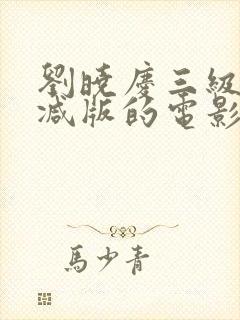 劉曉慶三級
减版的電影
馬少青